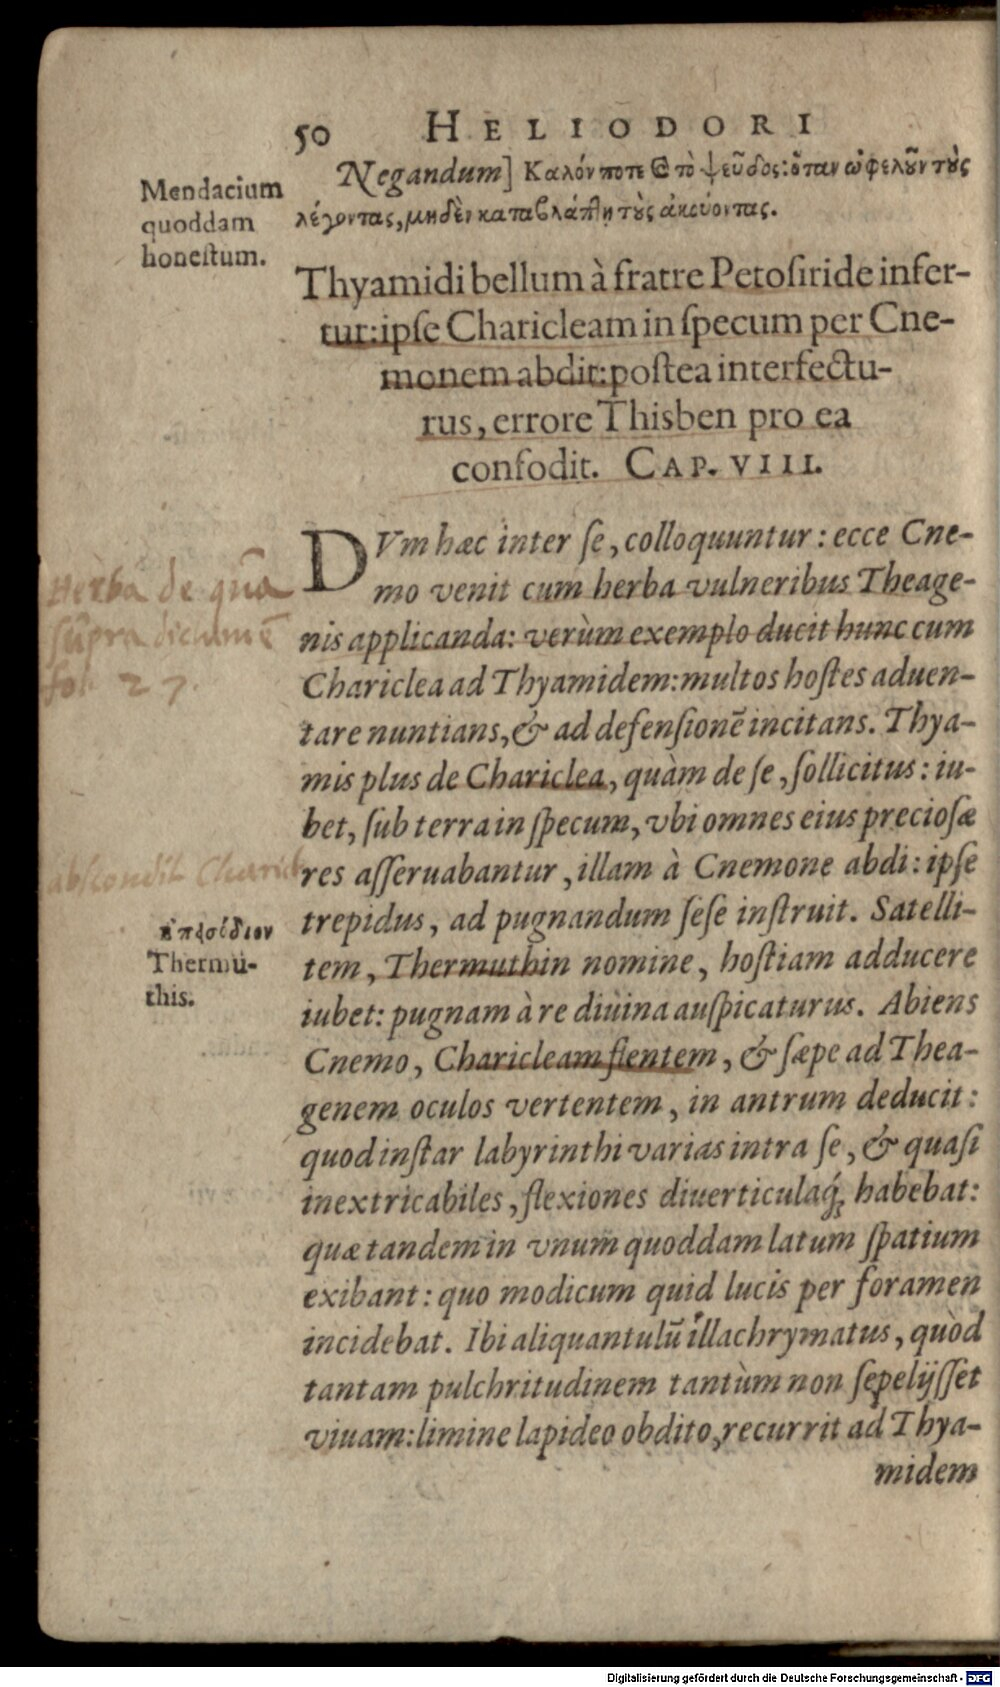 50 HELIODORI
Negandum] Καλόν ποτε ϗ τὸ ψεῦδος: ὅταν ὠφελοῦν τοὺς
λέγοντας, μηδὲν καταβλάπτῃ τοὺς ἀκούοντας.
Mendacium
quoddam
honestum.
Thyamidi bellum à fratre Petosiride infer-
tur: ipse Charicleam in specum per Cne-
monem abdit: postea interfectu-
rus, errore Thisben pro ea
confodit. CAP. VIII.
DVm hæc inter se, colloquuntur: ecce Cne-
mo venit cum herba vulneribus Theage-
nis applicanda: verùm exemplo ducit hunc cum
Chariclea ad Thyamidem: multos hostes aduen-
tare nuntians, & ad defensionē incitans. Thya-
mis plus de Chariclea, quàm de se, sollicitus: iu-
bet, sub terra in specum, vbi omnes eius preciosæ
res asseruabantur, illam à Cnemone abdi: ipse
trepidus, ad pugnandum sese instruit. Satelli-
tem, Thermuthin nomine, hostiam adducere
iubet: pugnam à re diuina auspicaturus. Abiens
Cnemo, Charicleam flentem, & sæpe ad Thea-
genem oculos vertentem, in antrum deducit:
quod instar labyrinthi varias intra se, & quasi
inextricabiles, flexiones diuerticulaq́; habebat:
quæ tandem in vnum quoddam latum spatium
exibant: quo modicum quid lucis per foramen
incidebat. Ibi aliquantulū illachrymatus, quòd
tantam pulchritudinem tantùm non sepelijsset
viuam: limine lapideo obdito, recurrit ad Thya-
midem
Herba de qua
supra dictum ē
fol. 27.
abscondit Charicl
Thermu-
this.
Digitalisierung gefördert durch die Deutsche Forschungsgemeinschaft - DFG